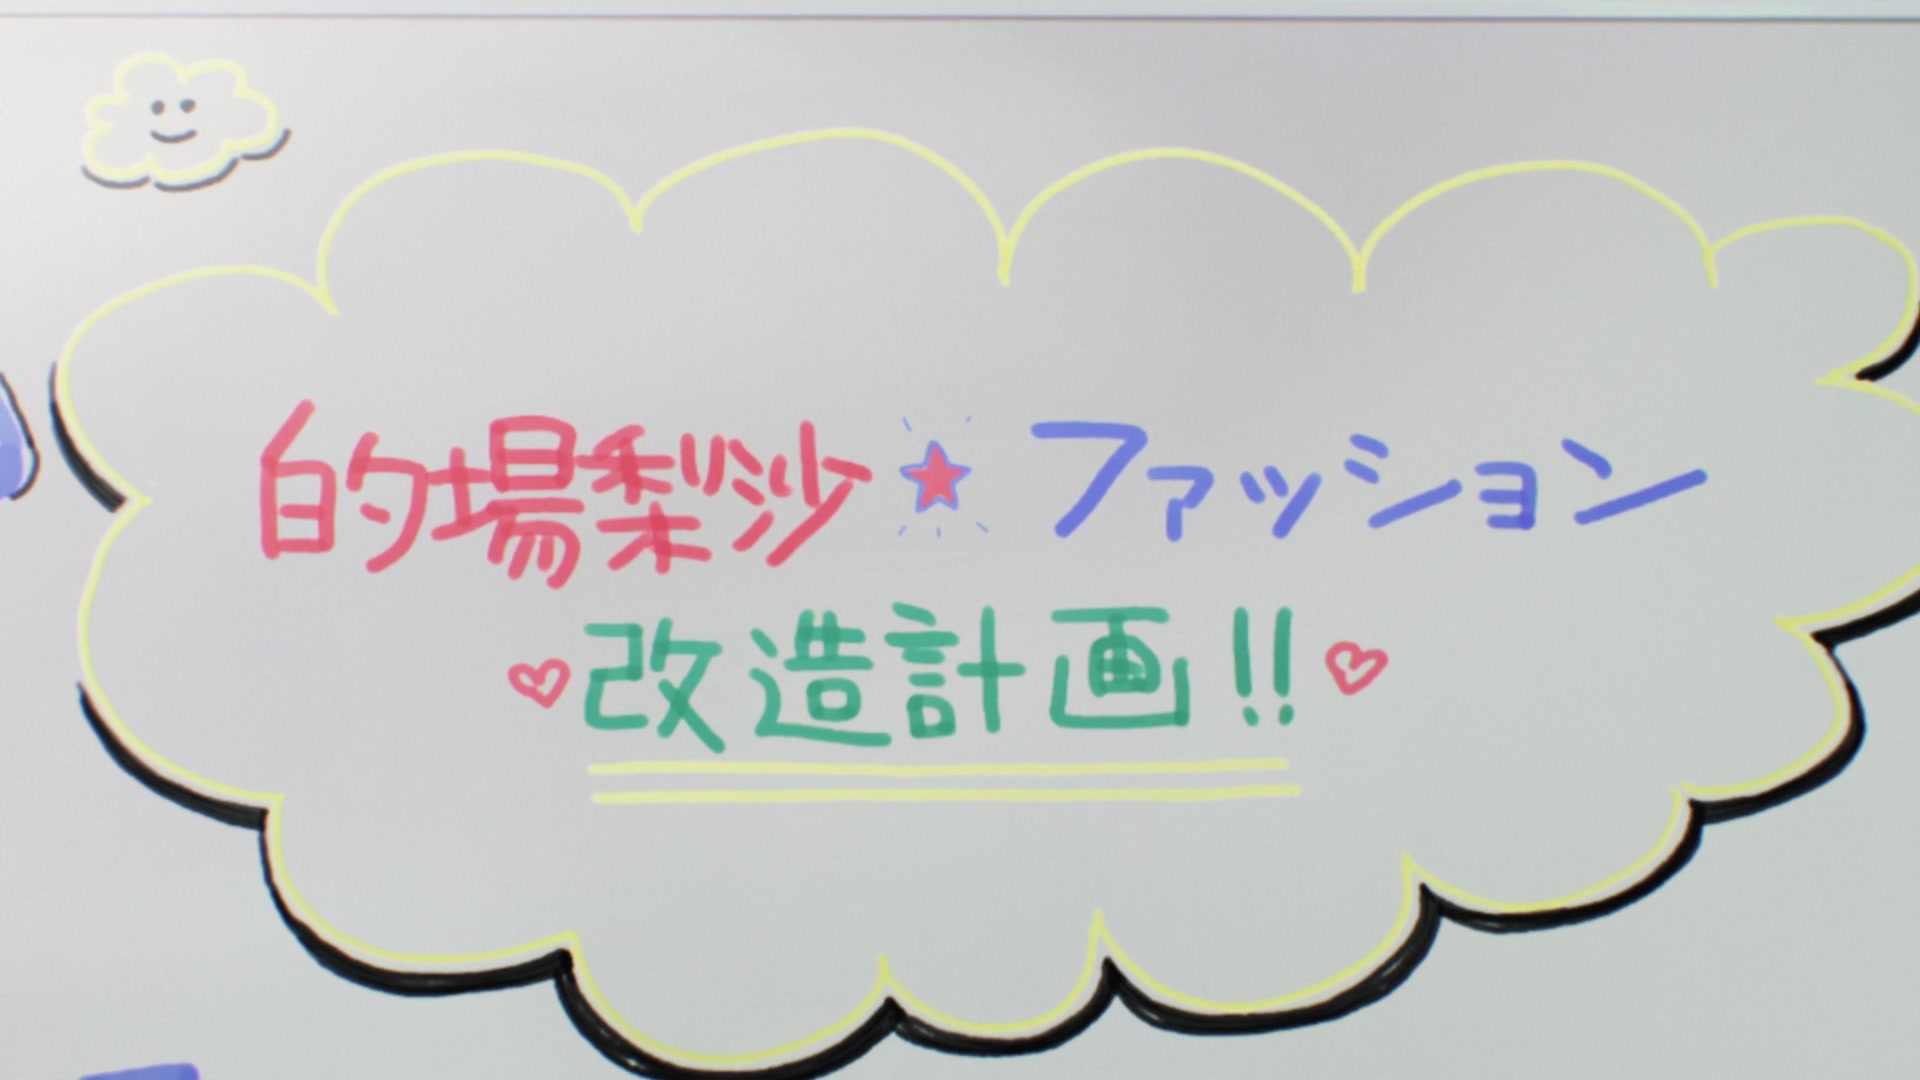 的場梨沙★ファッション
♡改造計画!!♡